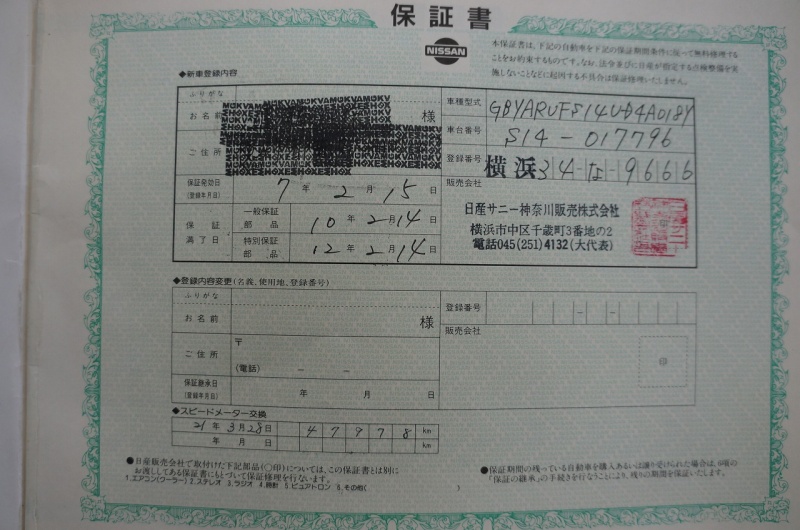 保証書
NISSAN
本保証書は、下記の自動車を下記の保証期間条件に従って無料修理する
ことをお約束するものです。なお、法令並びに日産が指定する点検整備を実
施しないことなどに起因する不具合は保証修理いたしません。
◆新車登録内容
ふりがな
お名前 様
ご住所
車種型式 GBYARUFS14U-D4A018Y
車台番号 S14-017796
登録番号 横浜34な-9666
保証発効日
(登録年月日)
7年2月15日
保証満了日
一般保証部品 10年2月14日
特別保証部品 12年2月14日
販売会社
日産サニー神奈川販売株式会社
横浜市中区千歳町3番地の2
電話045(251)4132(大代表)
◆登録内容変更(名義、使用地、登録番号)
ふりがな
お名前 様
ご住所 〒
(電話) - -
保証継承日
(登録年月日)
年 月 日
登録番号 - -
販売会社
印
◆スピードメーター交換
21年3月28日 47978km
年 月 日 km
●日産販売会社で取付けた下記部品(○印)については、この保証書とは別に
お渡ししてある保証書にもとづいて保証修理を行ないます。
1.エアコン(クーラー) 2.ステレオ 3.ラジオ 4.時計 5.ピュアトロン 6.その他( )
●保証期間の残っている自動車を購入あるいは譲り受けられた場合は、
「保証の継承」の手続きを行なうことにより、残りの期間を保証いたします。